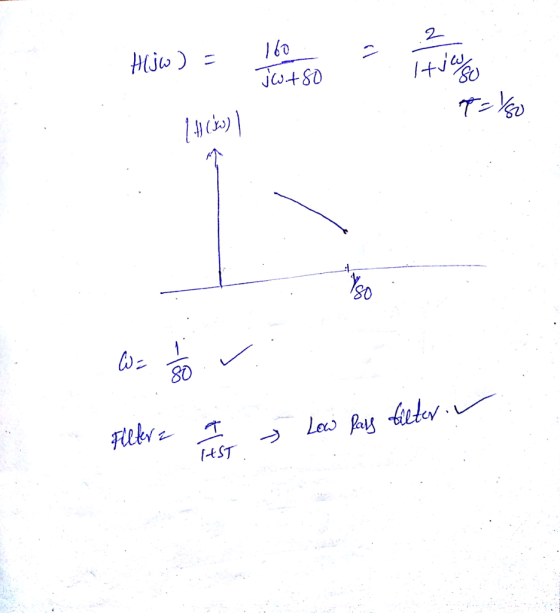 H(jω) = 160 / (jω+80) = 2 / (1+jω/80)
T = 1/80
|H(jω)|
1/80
ω = 1/80 ✓
Filter = T / (1+ST) → Low Pass filter. ✓